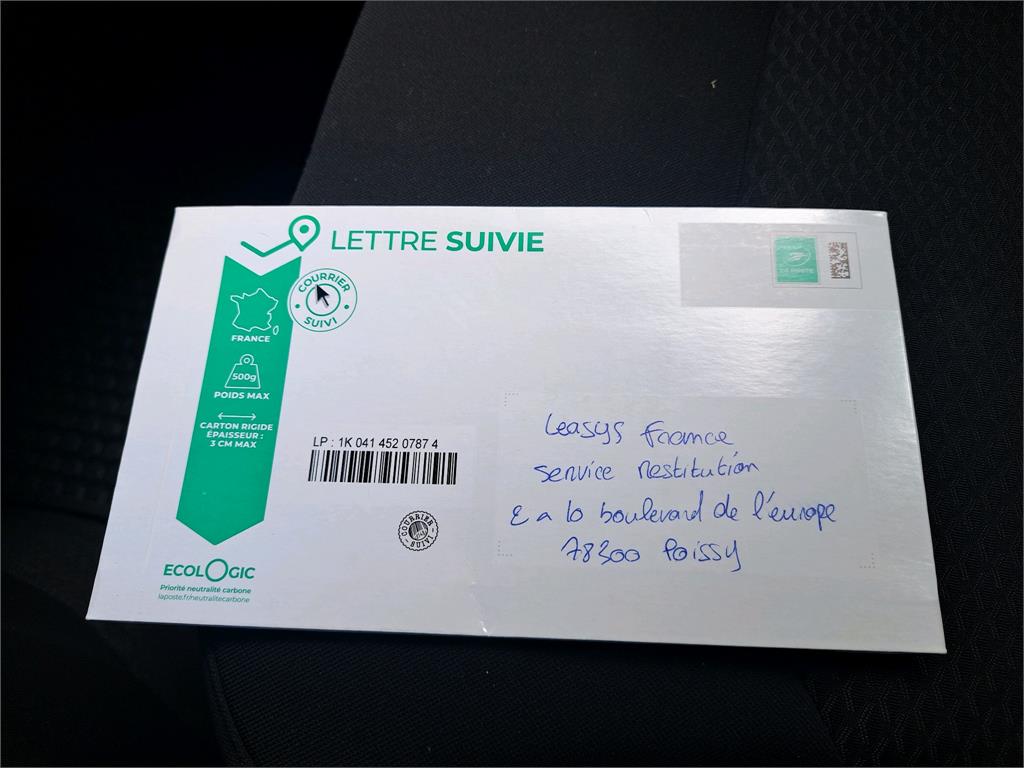 LETTRE SUIVIE
COURRIER
SUIVI
FRANCE
500g
POIDS MAX
CARTON RIGIDE
ÉPAISSEUR :
3 CM MAX
LP : 1K 041 452 0787 4
COURRIER
SUIVI
ECOLOGIC
Priorité neutralité carbone
laposte.fr/neutralitecarbone
LA POSTE
Leasys France
Service Restitution
2 a 10 boulevard de l'europe
78300 Poissy